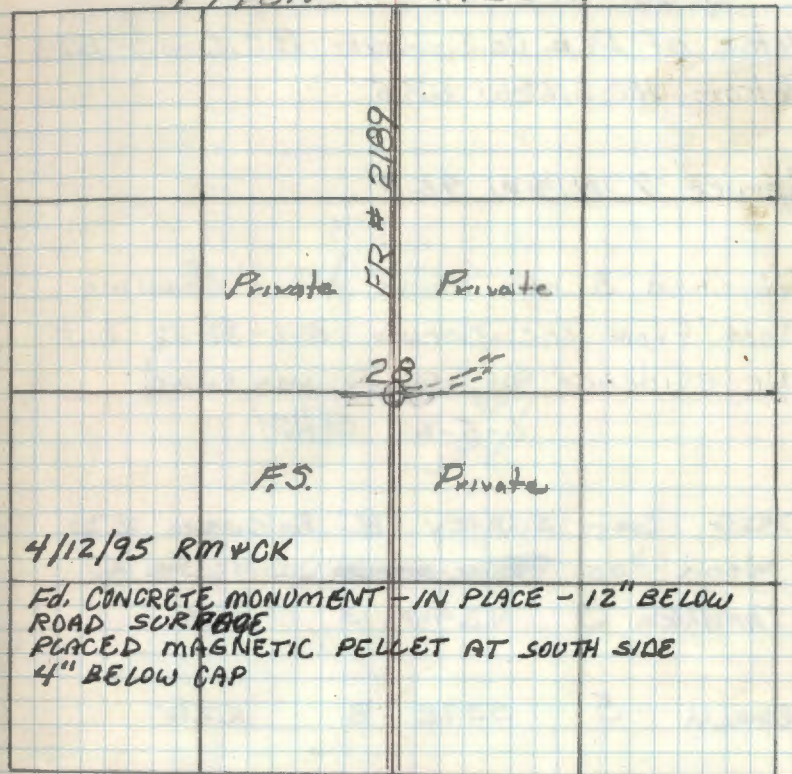 FR # 2189
Private Private
28
F.S. Private
4/12/95 RM & CK
Fd. CONCRETE MONUMENT - IN PLACE - 12" BELOW
ROAD SURFACE
PLACED MAGNETIC PELLET AT SOUTH SIDE
4" BELOW CAP